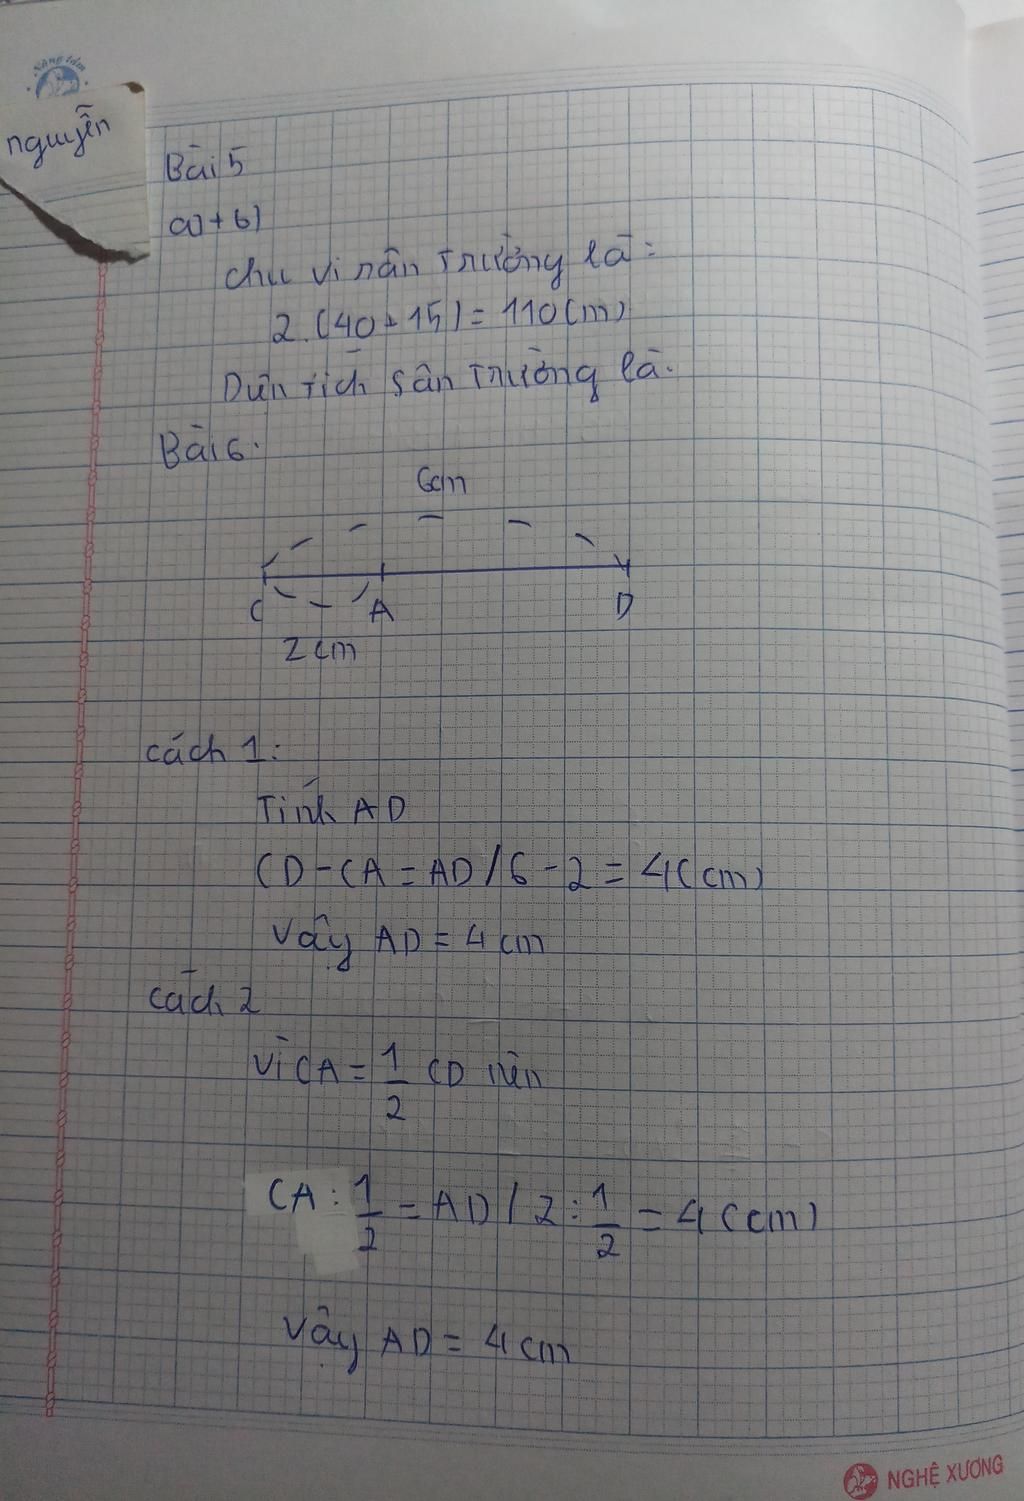 Nâng tầm
nguyễn
Bài 5
a)+b)
chu vi sân trường là:
2.(40+15)=110(m)
Diện tích sân trường là.
Bài 6.
6cm
C A D
2cm
cách 1:
Tính AD
CD-CA=AD/6-2=4(cm)
Vậy AD=4cm
cách 2
Vì CA=1/2 CD nên
CA:1/2=AD/2:1/2=4(cm)
Vậy AD=4cm
NGHỆ XƯƠNG